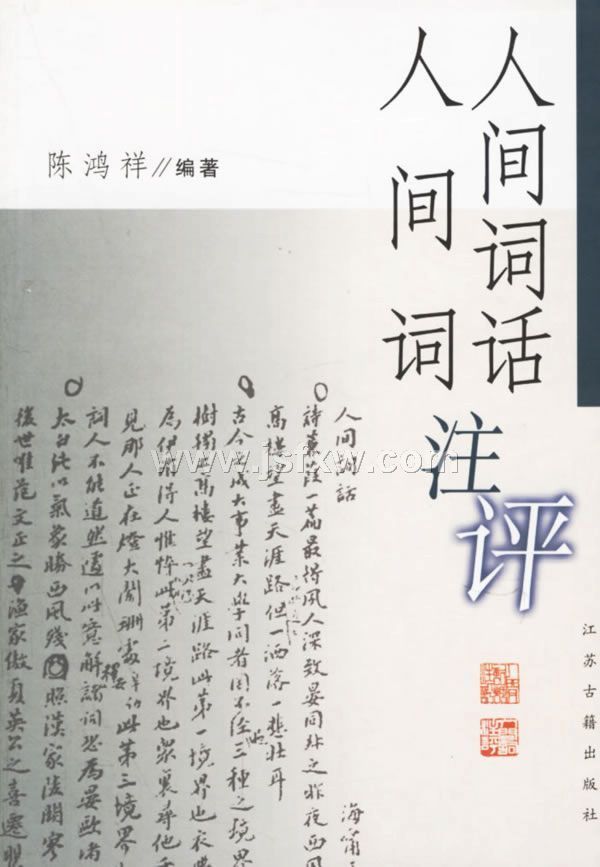 人间词话
人间词
注评
陈鸿祥//编著
江苏古籍出版社
www.jsfxw.com
人间詞話
海甯
詩蒹葭一篇最得風人深致晏同叔之昨夜西風
高樓望盡天涯路但一洒落一悲壯耳
古今之成大事業大學問者罔不經三種之境界
樹獨上高樓望盡天涯路此第一境界也衣
為伊消得人憔悴此第二境界也眾裏尋他千
見那人正在燈火闌珊處此第三境界
詞人不能道然遽以此意解諸詞恐為晏歐諸
太白純以氣象勝西風殘照漢家陵闕寥
後世唯范文正之漁家傲夏英公之喜遷